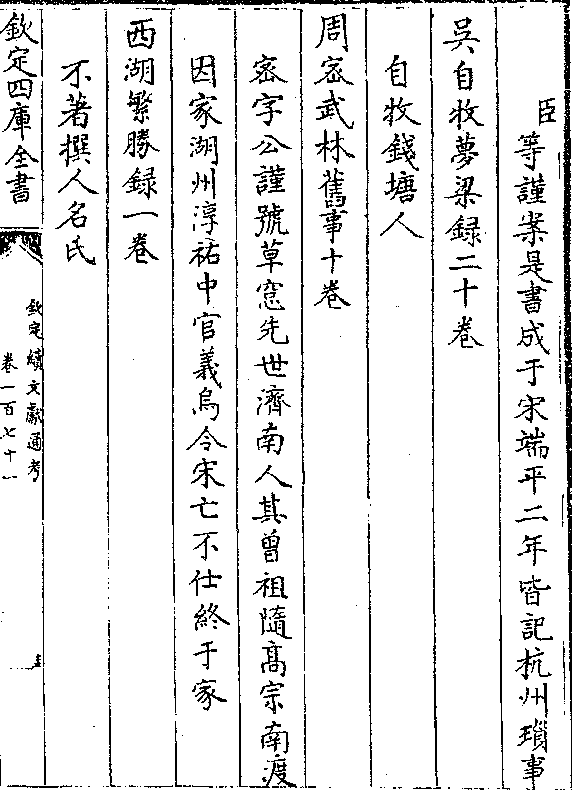 臣等謹案是書成于宋端平二年皆記杭州瑣事
吳自牧夢梁録二十卷
自牧錢塘人
周宻武林舊事十卷
宻字公謹號草窓先世濟南人其曾祖隨髙宗南渡
因家湖州淳祐中官義烏令宋亡不仕終于家
西湖繁勝録一卷
不著撰人名氏
欽定四庫全書
欽定續文獻通考
卷一百七十一